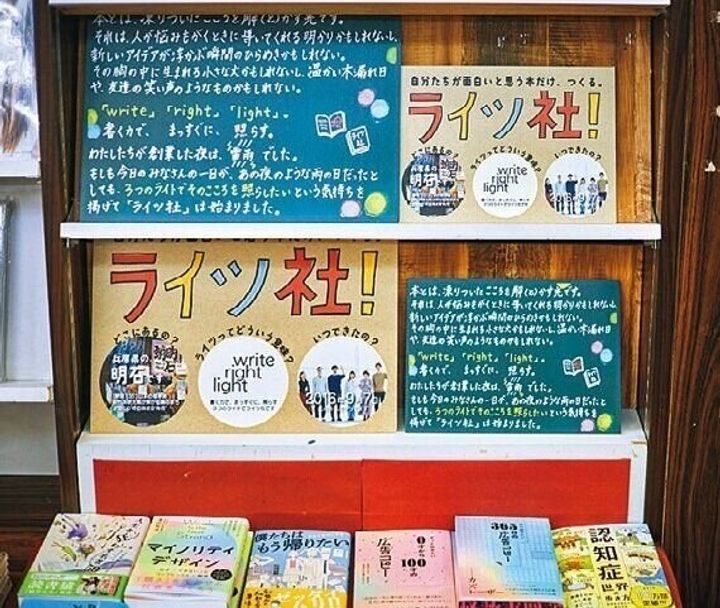 本とは、凍りついたこころを解(と)かす光です。
それは、人が悩みもがくときに導いてくれる明かりかもしれないし、
新しいアイデアが浮かぶ瞬間のひらめきかもしれない。
その胸の中に生まれる小さな火かもしれないし、温かい木漏れ日
や、友達の笑い声のようなものかもしれない。
「write」「right」「light」。
書く力で、まっすぐに、照らす。
わたしたちが創業した夜は、"雷雨"でした。
もしも今日のみなさんの一日が、あの夜のような雨の日だったと
しても、3つのライトでそのこころを照らしたいという気持ちを
掲げて「ライツ社」は始まりました。
自分たちが面白いと思う本だけ、つくる。
ライツ社!
どこにあるの?
ライツってどういう意味?
いつできたの?
兵庫県の、
明石
write
right
light
書く力で、まっすぐに、照らす
2016年9月7日
ライツ社!
どこにあるの?
ライツってどういう意味?
いつできたの?
兵庫県の、
明石
write
right
light
書く力で、まっすぐに、照らす
3つのライトでライツです
2016年9月7日
本とは、凍りついたこころを解(と)かす光です。
それは、人が悩みもがくときに導いてくれる明かりかもしれないし、
新しいアイデアが浮かぶ瞬間のひらめきかもしれない。
その胸の中に生まれる小さな火かもしれないし、温かい木漏れ日
や、友達の笑い声のようなものかもしれない。
「write」「right」「light」。
書く力で、まっすぐに、照らす。
わたしたちが創業した夜は、"雷雨"でした。
もしも今日のみなさんの一日が、あの夜のような雨の日だったと
しても、3つのライトでそのこころを照らしたいという気持ちを
掲げて「ライツ社」は始まりました。
読書猿
マイノリティ
デザイン
僕たちは
もう帰りたい
0から
100の
広告コピー
365日の
広告コピー
認知症
世界
歩き方